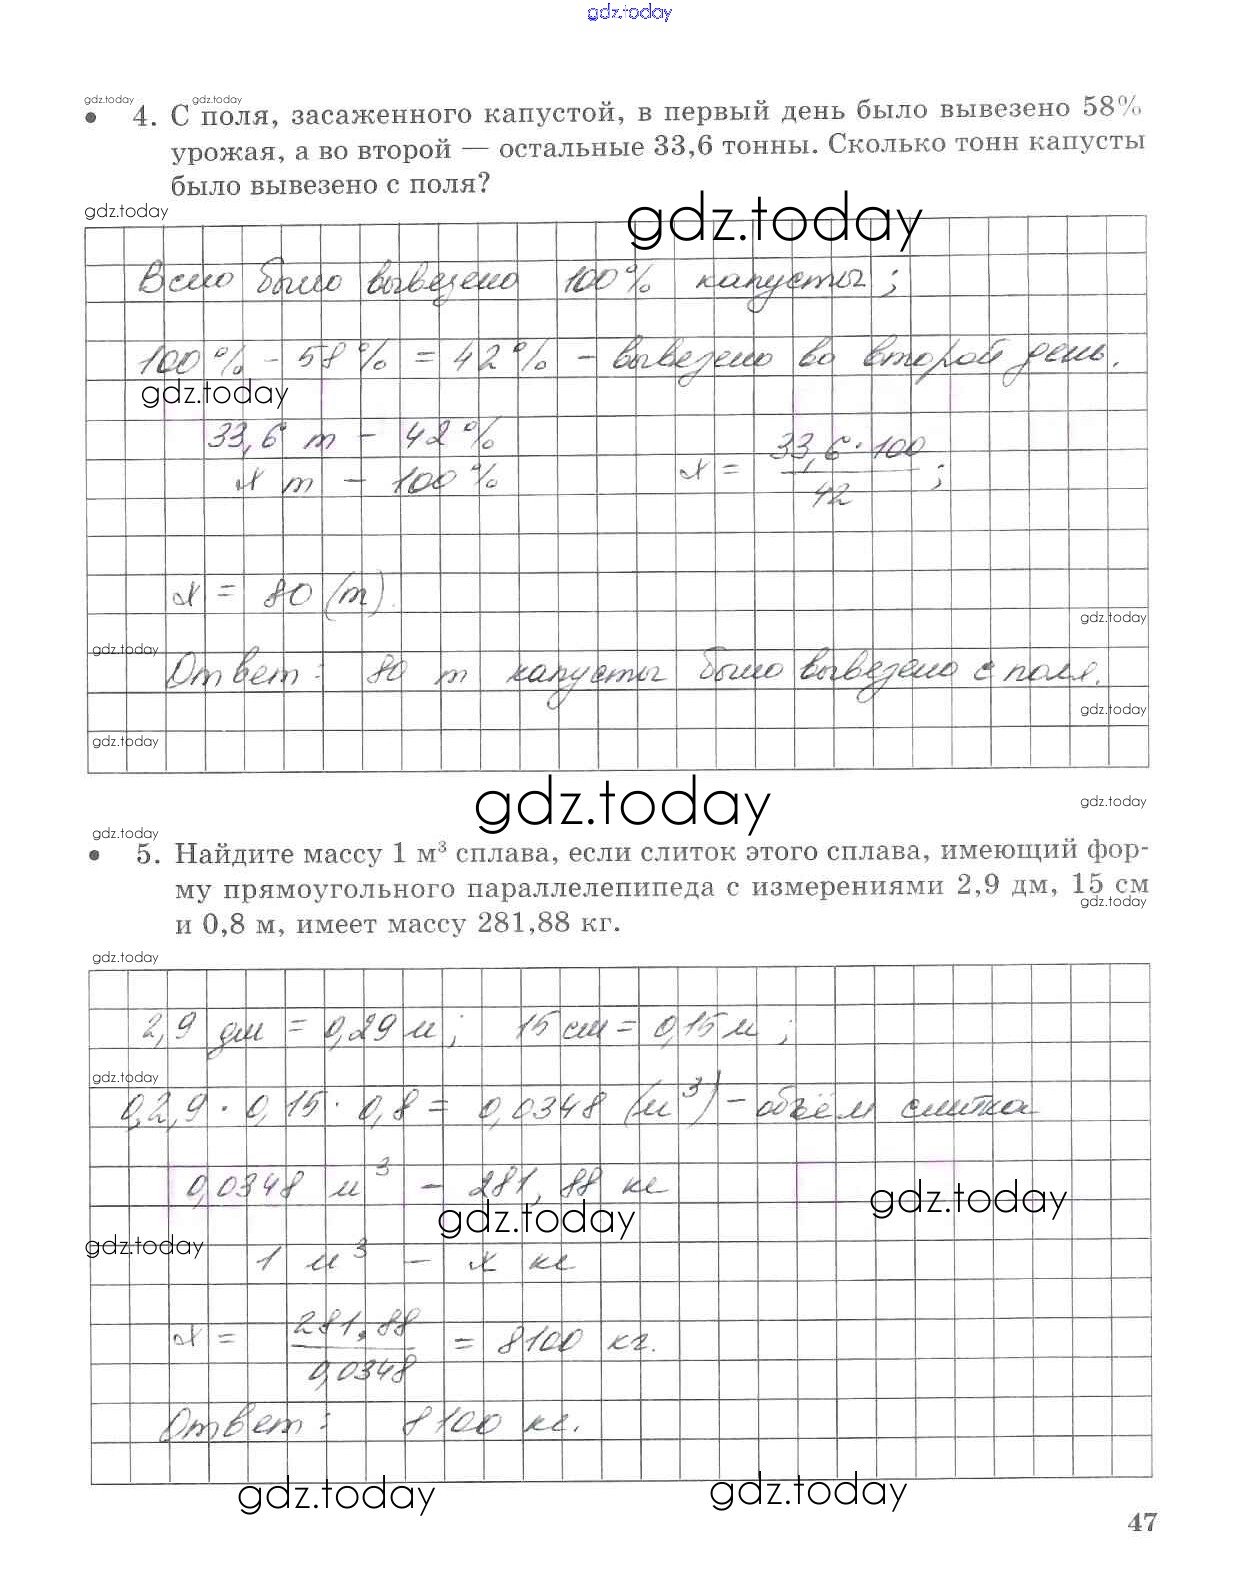 gdz.today
gdz.today gdz.today
• 4. С поля, засаженного капустой, в первый день было вывезено 58%
урожая, а во второй — остальные 33,6 тонны. Сколько тонн капусты
было вывезено с поля?
gdz.today gdz.today
Всего было вывезено 100% капусты;
100% - 58% = 42% - вывезено во второй день.
gdz.today
33,6 т - 42%
x т - 100%
x = 33,6 · 100 / 42 ;
x = 80 (т).
gdz.today
gdz.today
Ответ: 80 т капусты было вывезено с поля.
gdz.today
gdz.today
gdz.today gdz.today
gdz.today
• 5. Найдите массу 1 м³ сплава, если слиток этого сплава, имеющий фор-
му прямоугольного параллелепипеда с измерениями 2,9 дм, 15 см
gdz.today
и 0,8 м, имеет массу 281,88 кг.
gdz.today
2,9 дм = 0,29 м; 15 см = 0,15 м;
gdz.today
0,2,9 · 0,15 · 0,8 = 0,0348 (м³) - объём слитка
0,0348 м³ - 281,88 кг
gdz.today gdz.today
gdz.today
1 м³ - x кг
x = 281,88 / 0,0348 = 8100 кг.
Ответ: 8100 кг.
gdz.today gdz.today
47